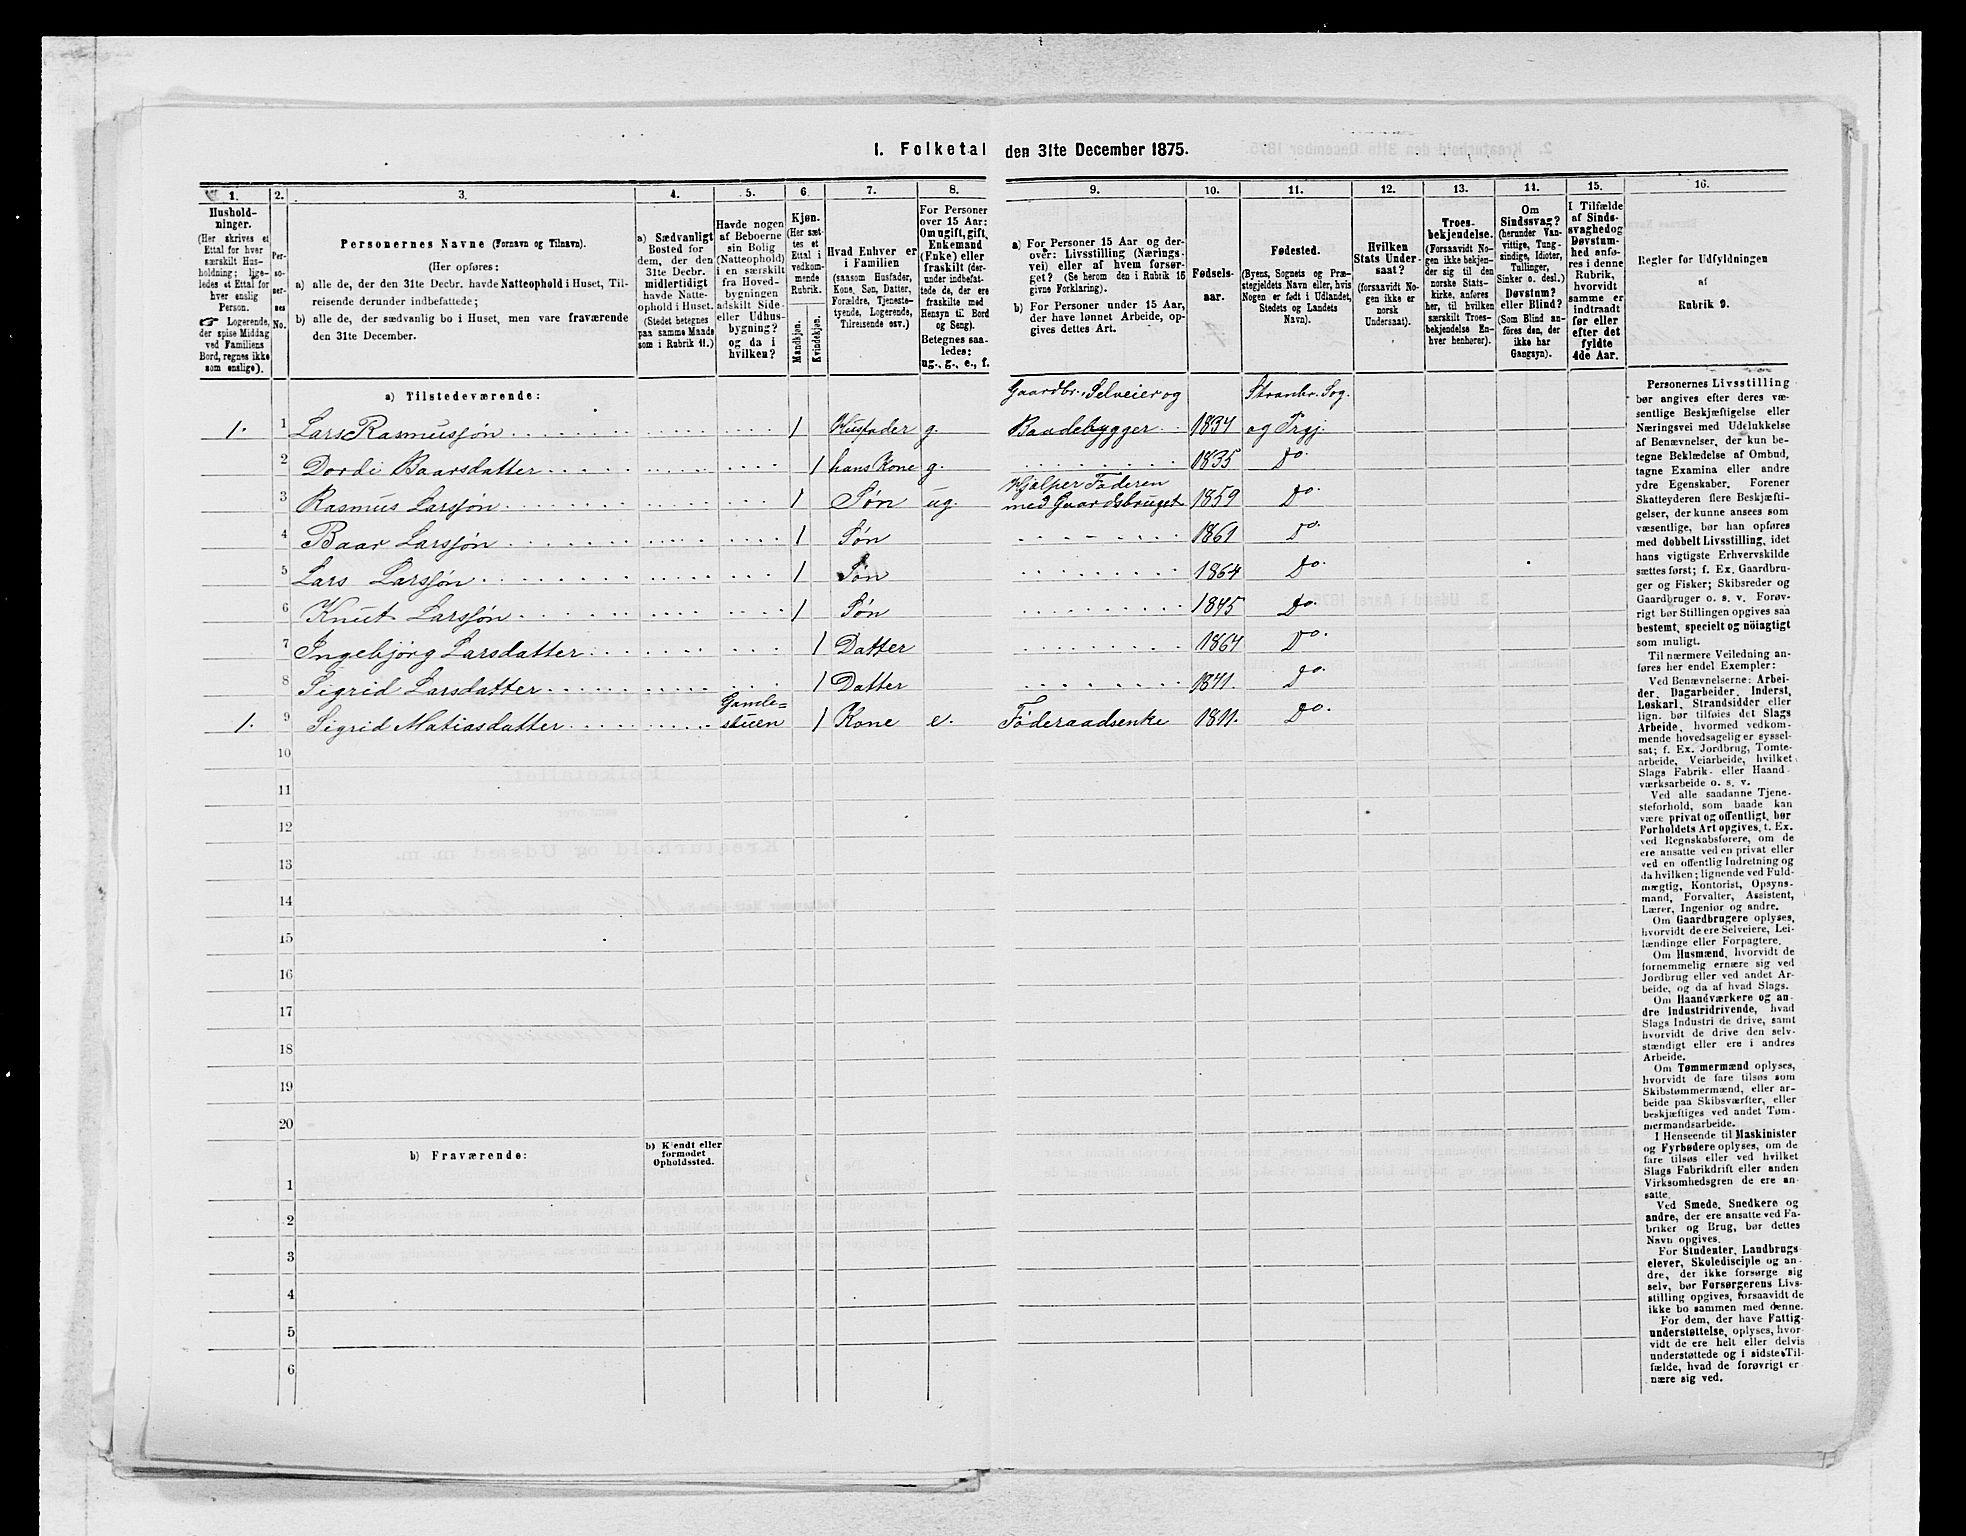 1. Folketal den 31te December 1875.
1.
Husholdninger.
(Her skrives et Ettal for hver særskilt Husholdning; ligeledes et Ettal for hver enslig Person.
☞ Logerende, der spise Middag ved Familiens Bord, regnes ikke som enslige).
2.
Personernes No.
3.
Personernes Navne (Fornavn og Tilnavn).
(Her opføres:
a) alle de, der den 31te Decbr. havde Natteophold i Huset, Tilreisende derunder indbefattede;
b) alle de, der sædvanlig bo i Huset, men vare fraværende den 31te December.
4.
a) Sædvanligt Bosted for dem, der den 31te Decbr. midlertidigt havde Natteophold i Huset.
(Stedet betegnes paa samme Maade som i Rubrik 11.)
5.
Havde nogen af Beboerne sin Bolig (Natteophold) i en særskilt fra Hovedbygningen adskilt Side- eller Udhusbygning? og da i hvilken?
6.
Kjøn.
(Her sættes et Ettal i vedkommende Rubrik.
Mandkjøn.
Kvindekjøn.
7.
Hvad Enhver er i Familien
(saasom Husfader, Kone, Søn, Datter, Forældre, Tjenestetyende, Logerende, Tilreisende osv.)
8.
For Personer over 15 Aar: Om ugift, gift, Enkemand (Enke) eller fraskilt (derunder indbefattede de, der ere fraskilte med Hensyn til Bord og Seng).
Betegnes saaledes: ug., g., e., f.
9.
a) For Personer 15 Aar og derover: Livsstilling (Næringsvei) eller af hvem forsørget? (Se herom den i Rubrik 16 givne Forklaring).
b) For Personer under 15 Aar, der have lønnet Arbeide, opgives dettes Art.
10.
Fødselsaar.
11.
Fødested.
(Byens, Sognets og Præstegjeldets Navn eller, hvis Nogen er født i Udlandet, Stedets og Landets Navn).
12.
Hvilken Stats Undersaat?
(forsaavidt Nogen ikke er norsk Undersaat).
13.
Troesbekjendelse.
(Forsaavidt Nogen ikke bekjender sig til den norske Statskirke, anføres her, til hvilken særskilt Troesbekjendelse Enhver henhører).
14.
Om Sindssvag? (herunder Vanvittige, Tungsindige, Idioter, Tullinger, Sinker o. desl.)
Døvstum? eller Blind?
(Som Blind anføres den, der ikke har Gangsyn).
15.
I Tilfælde af Sindssvaghed og Døvstumhed anføres i denne Rubrik, hvorvidt samme er indtraadt før eller efter det fyldte 4de Aar.
16.
Regler for Udfyldningen
af
Rubrik 9.
a) Tilstedeværende:
Gaardbr. Selveier og Stranbr. Sog.
1. 1 Lars Rasmusjøn 1 Husfader g. Baadebygger 1834 og Prgj.
2 Dordi Baarsdatter 1 hans Kone g. 1835 Do.
Hjælper Faderen
3 Rasmus Larsjøn 1 Søn ug. med Gaardsbruget 1859 Do.
4 Baar Larsjøn 1 Søn 1861 Do.
5 Lars Larsjøn 1 Søn 1864 Do.
6 Knut Larsjøn 1 Søn 1845 Do.
7 Ingebjørg Larsdatter 1 Datter 1864 Do.
8 Sigrid Larsdatter 1 Datter 1841. Do.
Gamle=
1. 9 Sigrid Matiasdatter stuen 1 Kone e. Føderaadsenke 1811. Do.
10
11
12
13
14
15
16
17
18
19
20
b) Fraværende:
b) Kjendt eller formodet Opholdssted.
1
2
3
4
5
6
Personernes Livsstilling
bør angives efter deres væ-
sentlige Beskjæftigelse eller
Næringsvei med Udelukkelse
af Benævnelser, der kun be-
tegne Beklædelse af Ombud,
tagne Examina eller andre
ydre Egenskaber. Forener
Skatteyderen flere Beskjæfti-
gelser, der kunne ansees som
væsentlige, bør han opføres
med dobbelt Livsstilling, idet
hans vigtigste Erhvervskilde
sættes først; f. Ex. Gaardbru-
ger og Fisker; Skibsreder og
Gaardbruger o. s. v. Forøv-
rigt bør Stillingen opgives saa
bestemt, specielt og nöiagtigt
som muligt.
Til nærmere Veiledning an-
føres her endel Exempler:
Ved Benævnelserne: Arbei-
der, Dagarbeider, Inderst,
Løskarl, Strandsidder eller
lign. bør tilføies det Slags
Arbeide, hvormed vedkom-
mende hovedsagelig er syssel-
sat; f. Ex. Jordbrug, Tomte-
arbeide, Veiarbeide, hvilket
Slags Fabrik- eller Haand-
værksarbeide o. s. v.
Ved alle saadanne Tjene-
steforhold, som baade kan
være privat og offentligt, bør
Forholdets Art opgives, t. Ex.
ved Regnskabsførere, om de
ere ansatte ved en privat eller
ved en offentlig Indretning og
da hvilken; lignende ved Fuld-
mægtig, Kontorist, Opsyns-
mand, Forvalter, Assistent,
Lærer, Ingeniør og andre.
Om Gaardbrugere oplyses,
hvorvidt de ere Selveiere, Lei-
lændinge eller Forpagtere.
Om Husmænd, hvorvidt de
fornemmelig ernære sig ved
Jordbrug eller ved andet Ar-
beide, og da af hvad Slags.
Om Haandværkere og an-
dre Industridrivende, hvad
Slags Industri de drive, samt
hvorvidt de drive den selv-
stændigt eller ere i andres
Arbeide.
Om Tømmermænd oplyses,
hvorvidt de fare tilsøs som
Skibstømmermænd, eller ar-
beide paa Skibsværfter, eller
beskjæftiges ved andet Tøm-
mermandsarbeide.
I Henseende til Maskinister
og Fyrbødere oplyses, om de
fare tilsøs eller ved hvilket
Slags Fabrikdrift eller anden
Virksomhedsgren de ere an-
satte.
Ved Smede, Snedkere og
andre, der ere ansatte ved Fa-
briker og Brug, bør dettes
Navn opgives.
For Studenter, Landbrugs-
elever, Skoledisciple og an-
dre, der ikke forsørge sig
selv, bør Forsørgerens Livs-
stilling opgives, forsaavidt de
ikke bo sammen med denne.
For dem, der have Fattig-
understøttelse, oplyses, hvor-
vidt de ere helt eller delvis
understøttede og i sidste Til-
fælde, hvad de forøvrigt er-
nære sig ved.